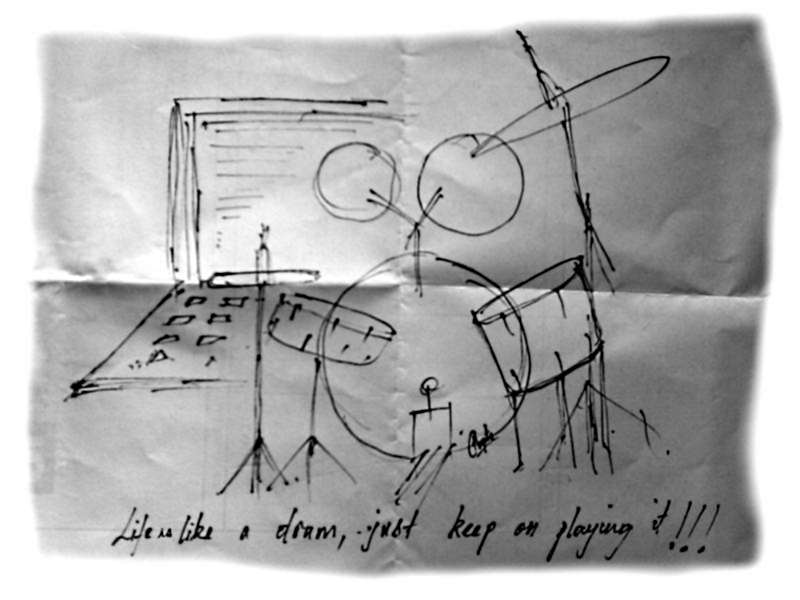 Life is like a dram, just keep on playing it!!!